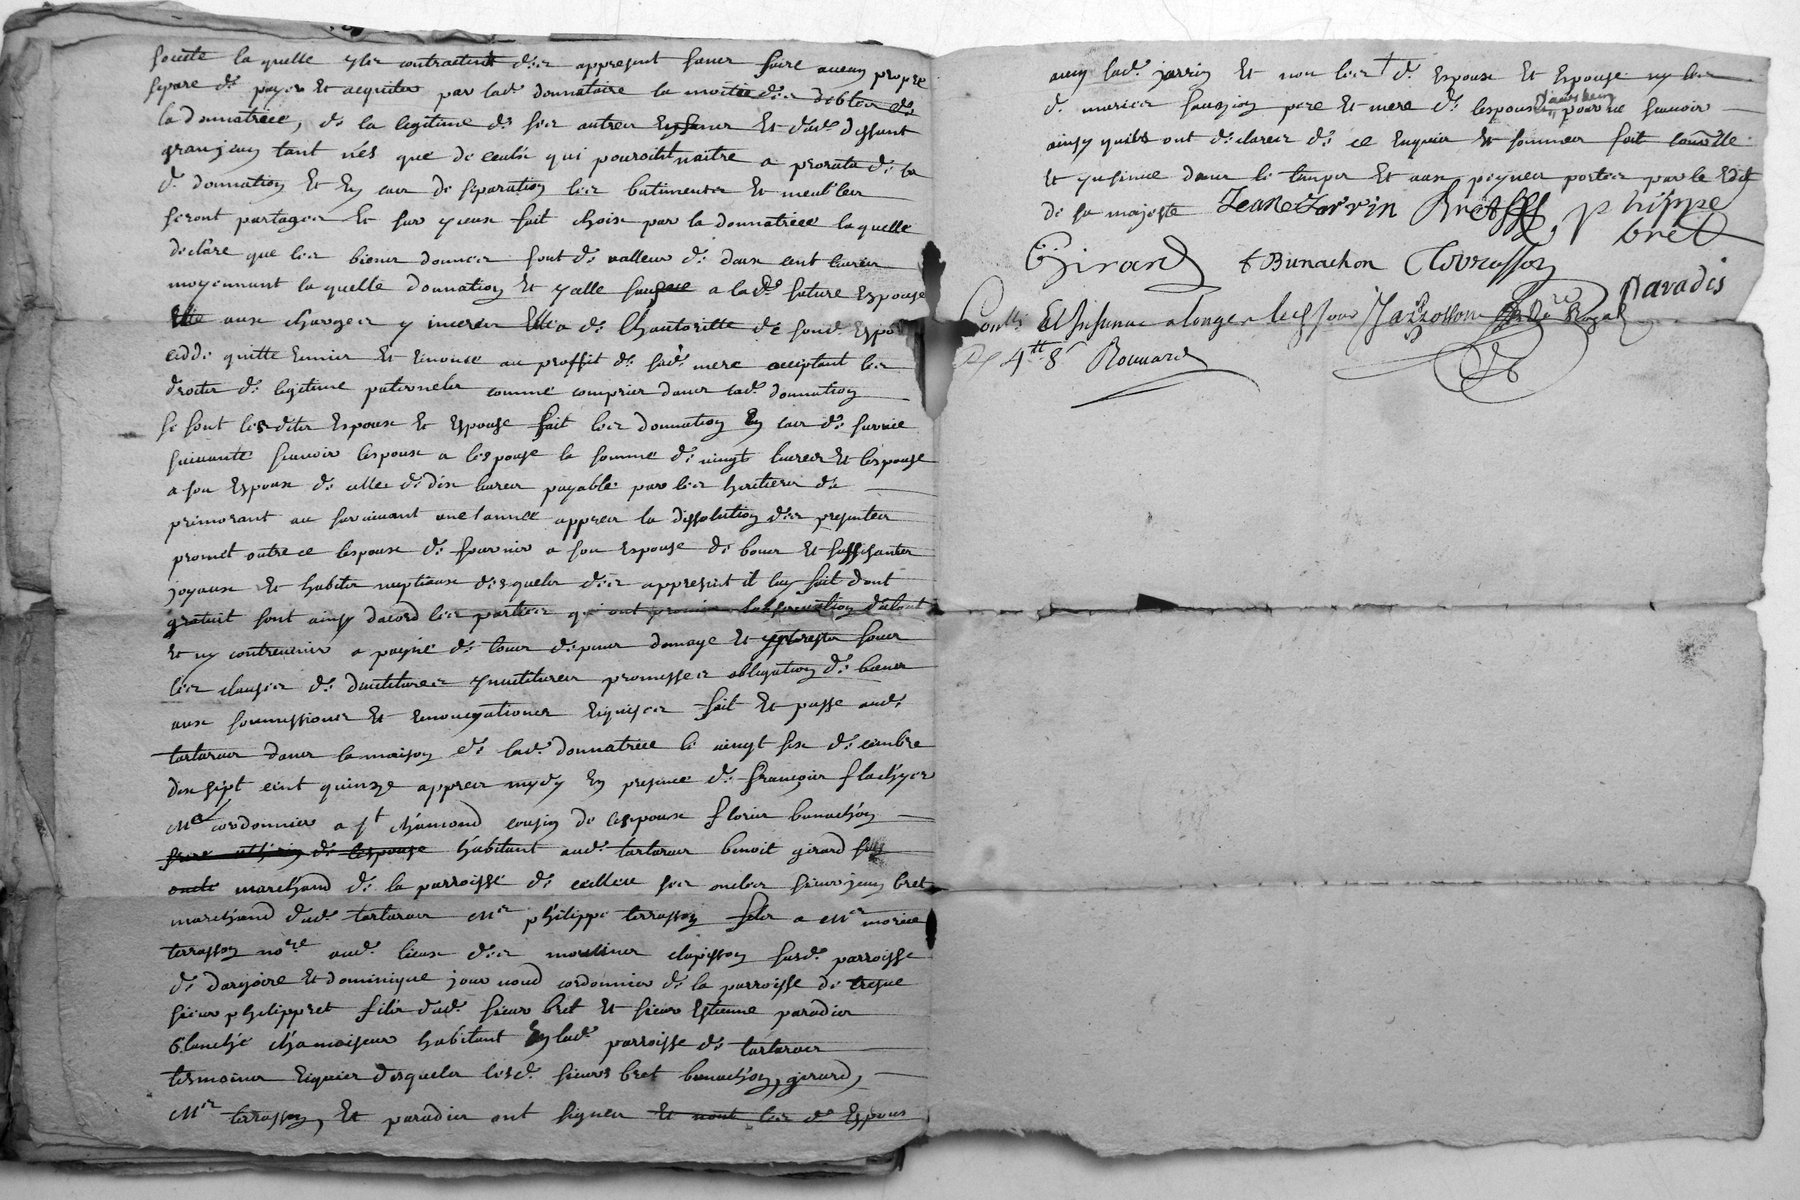 societé la quelle yles contractent des appresent sans faire aucun propre
separe de payer et acquiter par lad. donnataire la moitie des debtes de
la donnatrice, de la legitime de ses autres enfans et dud. deffunt
granjean tant nés que de ceulx qui pouroint naitre a prorata de la
d. donnation et en cas de separation les batimentes et meubles
seront partages et sur yceux fait choix par la donnatrice laquelle
declare que les biens donnes sont de valleur de deux cent livres
moyennant la quelle donnation et ycelle a lad. future espouse
aux charges y inceres elle a de lhautoritte de sond. espoux
cedde quitte remier et renonce au proffit de sad. mere acceptant les
droits de legitime paternels comme compris dans lad. donnation
se sont lesdites espoux et espouse fait les donnation en cas de survie
suivante scavoir lespoux a lespouse la somme de vingt livres et lespouse
a son espoux de celle de dix livres payable par les heritiers du
primorant au survivant une année appres la dissolution des presentes
promet outre ce lespoux de fournir a son espouse de bons et suffisantes
joyaux et habits nuptiaux desquels des appresent il luy fait dont
gratuit sont ainsy dacord les parties qui ont promis lobservation dutout
et ny contrevenir a payne de tous depens domage et ynterests sous
les clauses de dautitures ynutitures promesses obligation de biens
aux soumissions et renonciations requises fait et passe aud.
tartaras dans la maison de lad. donnatrice le vingt six decembre
dix sept cent quinze appres mydy en presence de françois flachyes
me cordonnier a st chamond cousin de lespoux floris bonachon
frere uthérin de lespouse habitant aud. tartaras benoit girard son
oncle marchand de la parroisse de cellieu ses oncles sieur jean bret
marchand dud. tartaras me philippe terrasson fils a me morice
terrasson nore aud. lieux des moulines clapisson susd. parroisse
de dargoire et dominique jour noud cordonnier de la parroisse de treque
sieur philipp bret fils dud. sieur bret et sieur estienne paradis
blanché chamoiseur habitant en lad. parroisse de tartaras
tesmoins requis desquels lesd. sieurs bret bonachon, girard,
me terrasson, et paradis ont signer et nont les d. espoux
avey lad. jarrin et non les d. espoux et espouse ny les
d. maries pere et mere de lespoux pour ne scavoir
ainsy quils ont declarer de ce enquis et sommer soit controlle
et ynsinue dans le temps et aux peynes porter par le edit
de sa majeste Jeane Jarrin Bret Phlippe
bret
Girard f Bunachon Terrasson
Paradis
Conlle et Insinue a longe Terrasson nore Royal
4tt 8s Rouuard